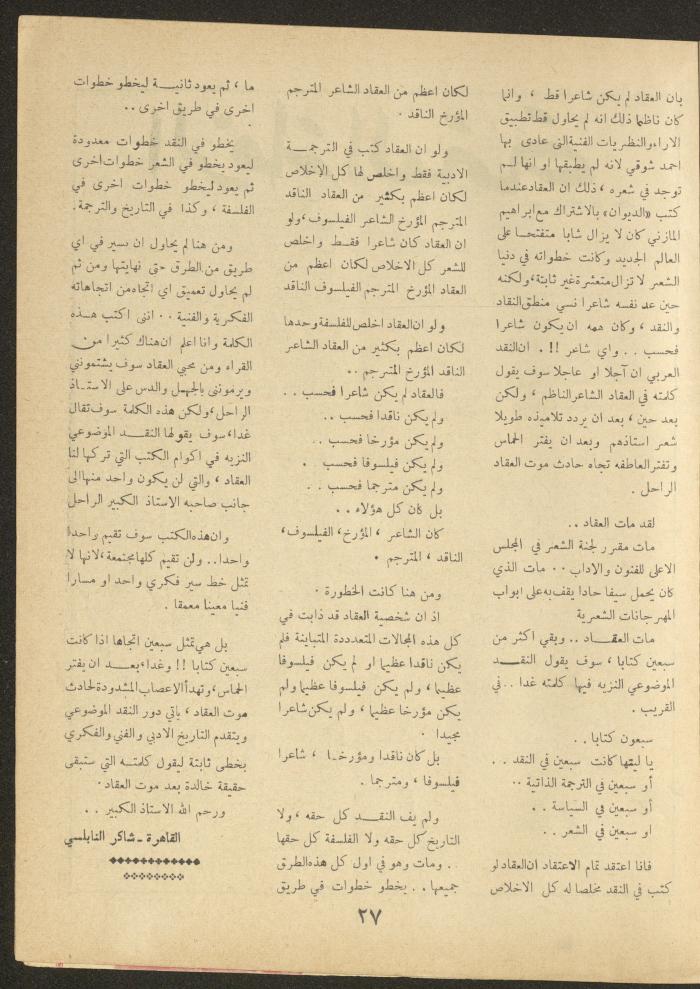 بان العقاد لم يكن شاعرا قط ، وانما
كان ناظما ذلك انه لم يحاول قط تطبيق
الاراء والنظريات الفنية التي عادى بها
احمد شوقي لانه لم يطبقها او انها لـم
توجد في شعره ، ذلك ان العقاد عندما
كتب «الديوان» بالاشتراك مع ابراهيم
المازني كان لا يزال شابا متفتحـا على
العالم الجديد وكانت خطواته في دنيا
الشعر لا تزال متعثرة غير ثابتة، ولكنه
حين عد نفسه شاعرا نسي منطق النقاد
والنقد ، وكان همه ان يكون شاعرا
فحسب . . واي شاعر !! . ان النقد
العربي ان آجلا او عاجلا سوف يقول
كلمته في العقاد الشاعر الناظم ، ولكن
بعد حين ، بعد ان يردد تلاميذه طويلا
شعر استاذهم وبعد ان يفتر الحماس
وتفتر العاطفه تجاه حادث موت العقاد
الراحل .
لقد مات العقاد ..
مات مقرر لجنة الشعر في المجلس
الاعلى للفنون والاداب . . مات الذي
كان يحمل سيفا حادا يقف به على ابواب
المهرجانات الشعرية
مات العقـاد .. وبقي اكثر من
سبعين كتابا ، سوف يقول النقـد
الموضوعي النزيه فيها كلمته غدا .. في
القريب .
سبعون كتابا . .
يا ليتها كانت سبعين في النقد . .
أو سبعين في الترجمة الذاتية ..
أو سبعين في السياسة . .
او سبعين في الشعر . .
فانا اعتقد تمام الاعتقاد ان العقاد لو
كتب في النقد مخلصا له كل الاخلاص
لكان اعظم من العقاد الشاعر المترجم
المؤرخ الناقد .
ولو ان العقاد كتب في الترجمـــة
الادبية فقط واخلص لها كل الإخلاص
لكان اعظم بكثير من العقاد الناقد
المترجم المؤرخ الشاعر الفيلسوف ، ولو
ان العقاد كان شاعرا فقـط واخلص
للشعر كل الاخلاص لكان اعظم من
العقاد المؤرخ المترجم الفيلسوف الناقد
ولو ان العقاد اخلص للفلسفة وحدها
لكان اعظم بكثير من العقاد الشاعر
الناقد المؤرخ المترجم ..
فالعقاد لم يكن شاعرا فحسب . .
ولم يكن ناقدا فحسب ..
ولم يكن مؤرخا فحسب ..
ولم يكن فيلسوفا فحسب . .
ولم يكن مترجما فحسب . .
بل كان كل هؤلاء . .
كان الشاعر ، المؤرخ، الفيلسوف،
الناقد ، المترجم .
ومن هنا كانت الخطورة .
اذ ان شخصية العقاد قد ذابت في
كل هذه المجالات المتعددة المتباينة فلم
يكن ناقدا عظيما او لم يكن فيلسوفا
عظيما ، ولم يكن فيلسوفا عظيما ولم
يكن مؤرخا عظيما ، ولم يكن شاعرا
مجيدا .
بل كان ناقدا ومؤرخـا ، شاعرا
فيلسوفا ، ومترجما .
ولم يف النقـد كل حقه ، ولا
التاريخ كل حقه ولا الفلسفة كل حقها
.. ومات وهو في اول كل هذه الطرق
جميعها . . يخطو خطوات في طريق
ما ، ثم يعود ثانيـة ليخطو خطوات
اخرى في طريق اخرى ..
يخطو في النقد خطوات معدودة
ليعود يخطو في الشعر خطوات اخرى
ثم يعود ليخطو خطوات اخرى في
الفلسفة ، وكذا في التاريخ والترجمة.
ومن هنا لم يحاول ان يسير في اي
طريق من الطرق حتى نهايتها ومن ثم
لم يحاول تعميق اي اتجاه من اتجاهاته
الفكرية والفنية . . انني اكتب هـذه
الكلمة وانا اعلم ان هناك كثيرا من
القراء ومن محبي العقاد سوف يشتمونني
ويرمونني بالجهـل والدس على الاستـاذ
الراحل ، ولكن هذه الكلمة سوف تقال
غدا، سوف يقولها النقـد الموضوعي
النزيه في اكوام الكتب التي تركها لنا
العقاد ، والتي لن يكون واحد منها الى
جانب صاحبه الاستاذ الكبير الراحل
وان هذه الكتب سوف تقيم واحدا
واحدا .. ولن تقيم كلها مجتمعة ، لانها لا
تمثل خط سير فكري واحد او مسارا
فنيا معينا معمقا .
بل هي تمثل سبعين اتجاها اذا كانت
سبعين كتابا !! وغدا ، بعـد ان يفتر
الحماس، وتهدأ الاعصاب المشدودة لحادث
موت العقاد ، ياتي دور النقد الموضوعي
ويتقدم التاريخ الادبي والفني والفكري
بخطى ثابتة ليقول كلمتـه التي ستبقى
حقيقة خالدة بعد موت العقاد .
ورحم الله الاستاذ الكبير . .
القاهرة ـ شاكر النابلسي
٢٧